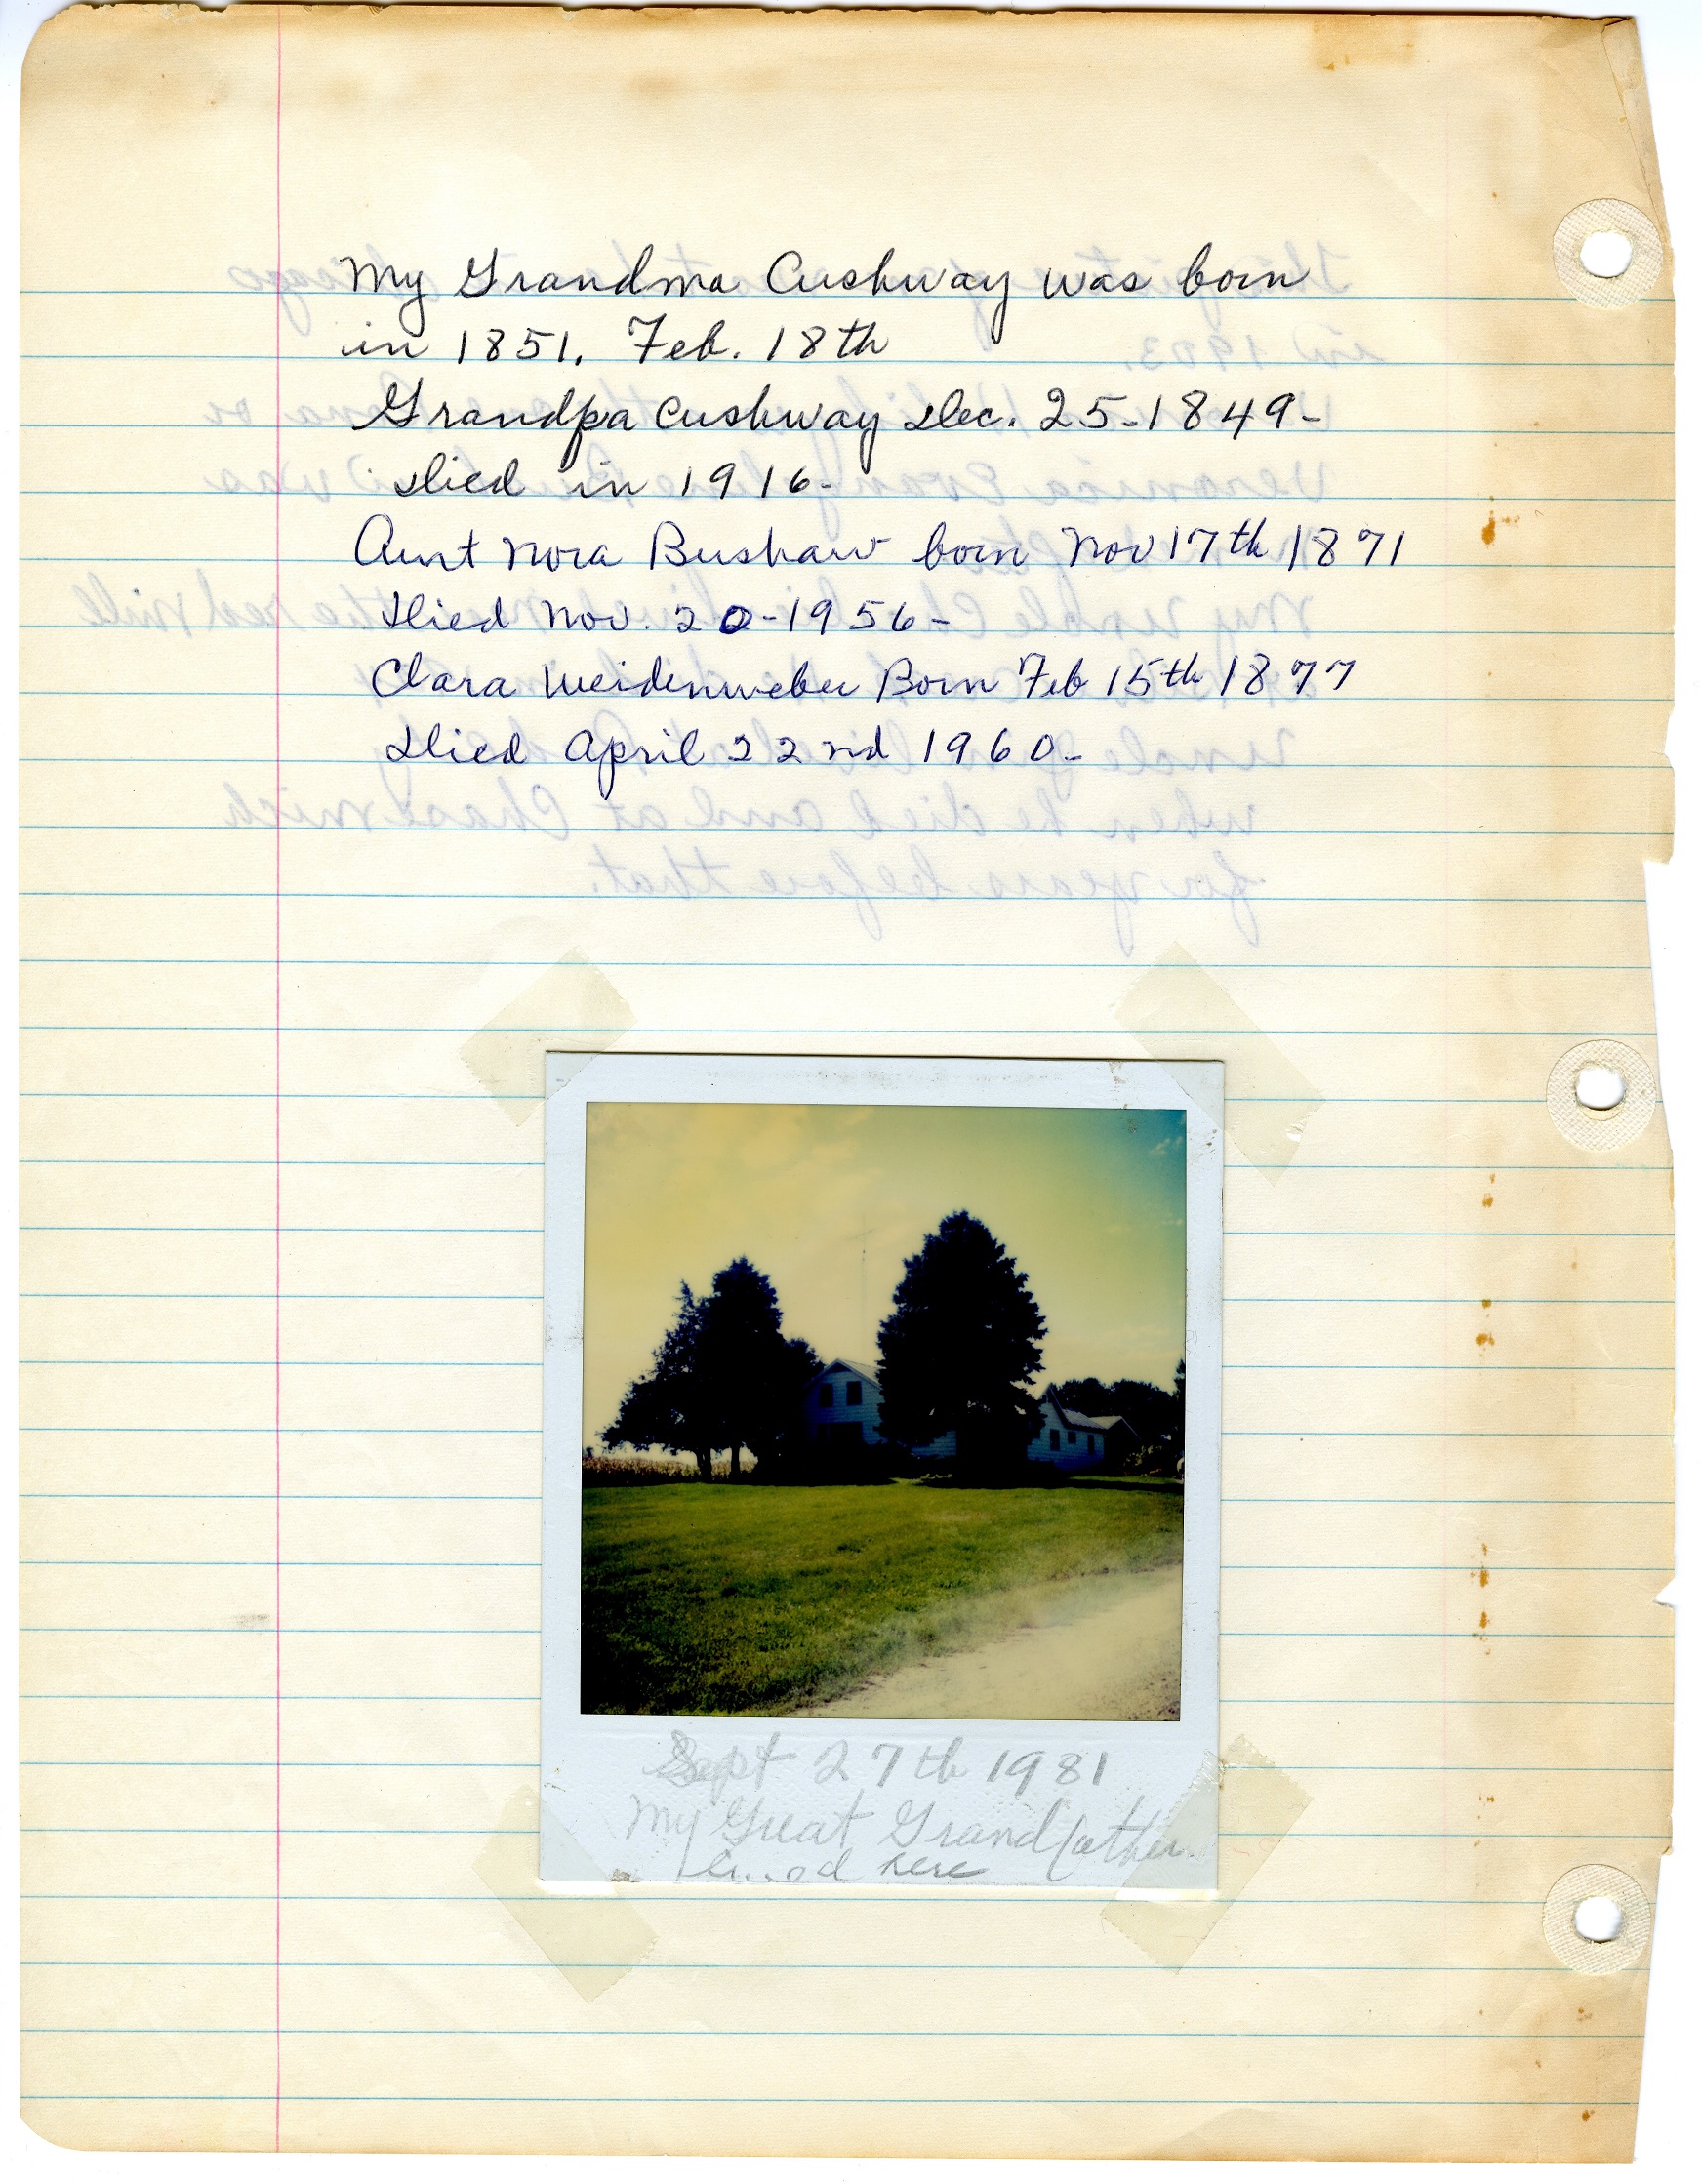 My Grandma Cushway was born
in 1851. Feb. 18th
Grandpa Cushway Dec. 25-1849-
Died in 1916-
Aunt Nora Bushaw born Nov 17th 1871
Died Nov. 20-1956-
Clara Weidenweber Born Feb 15th 1877
Died April 22nd 1960-
Sept 27th 1981
My Great Grandfather
lived here